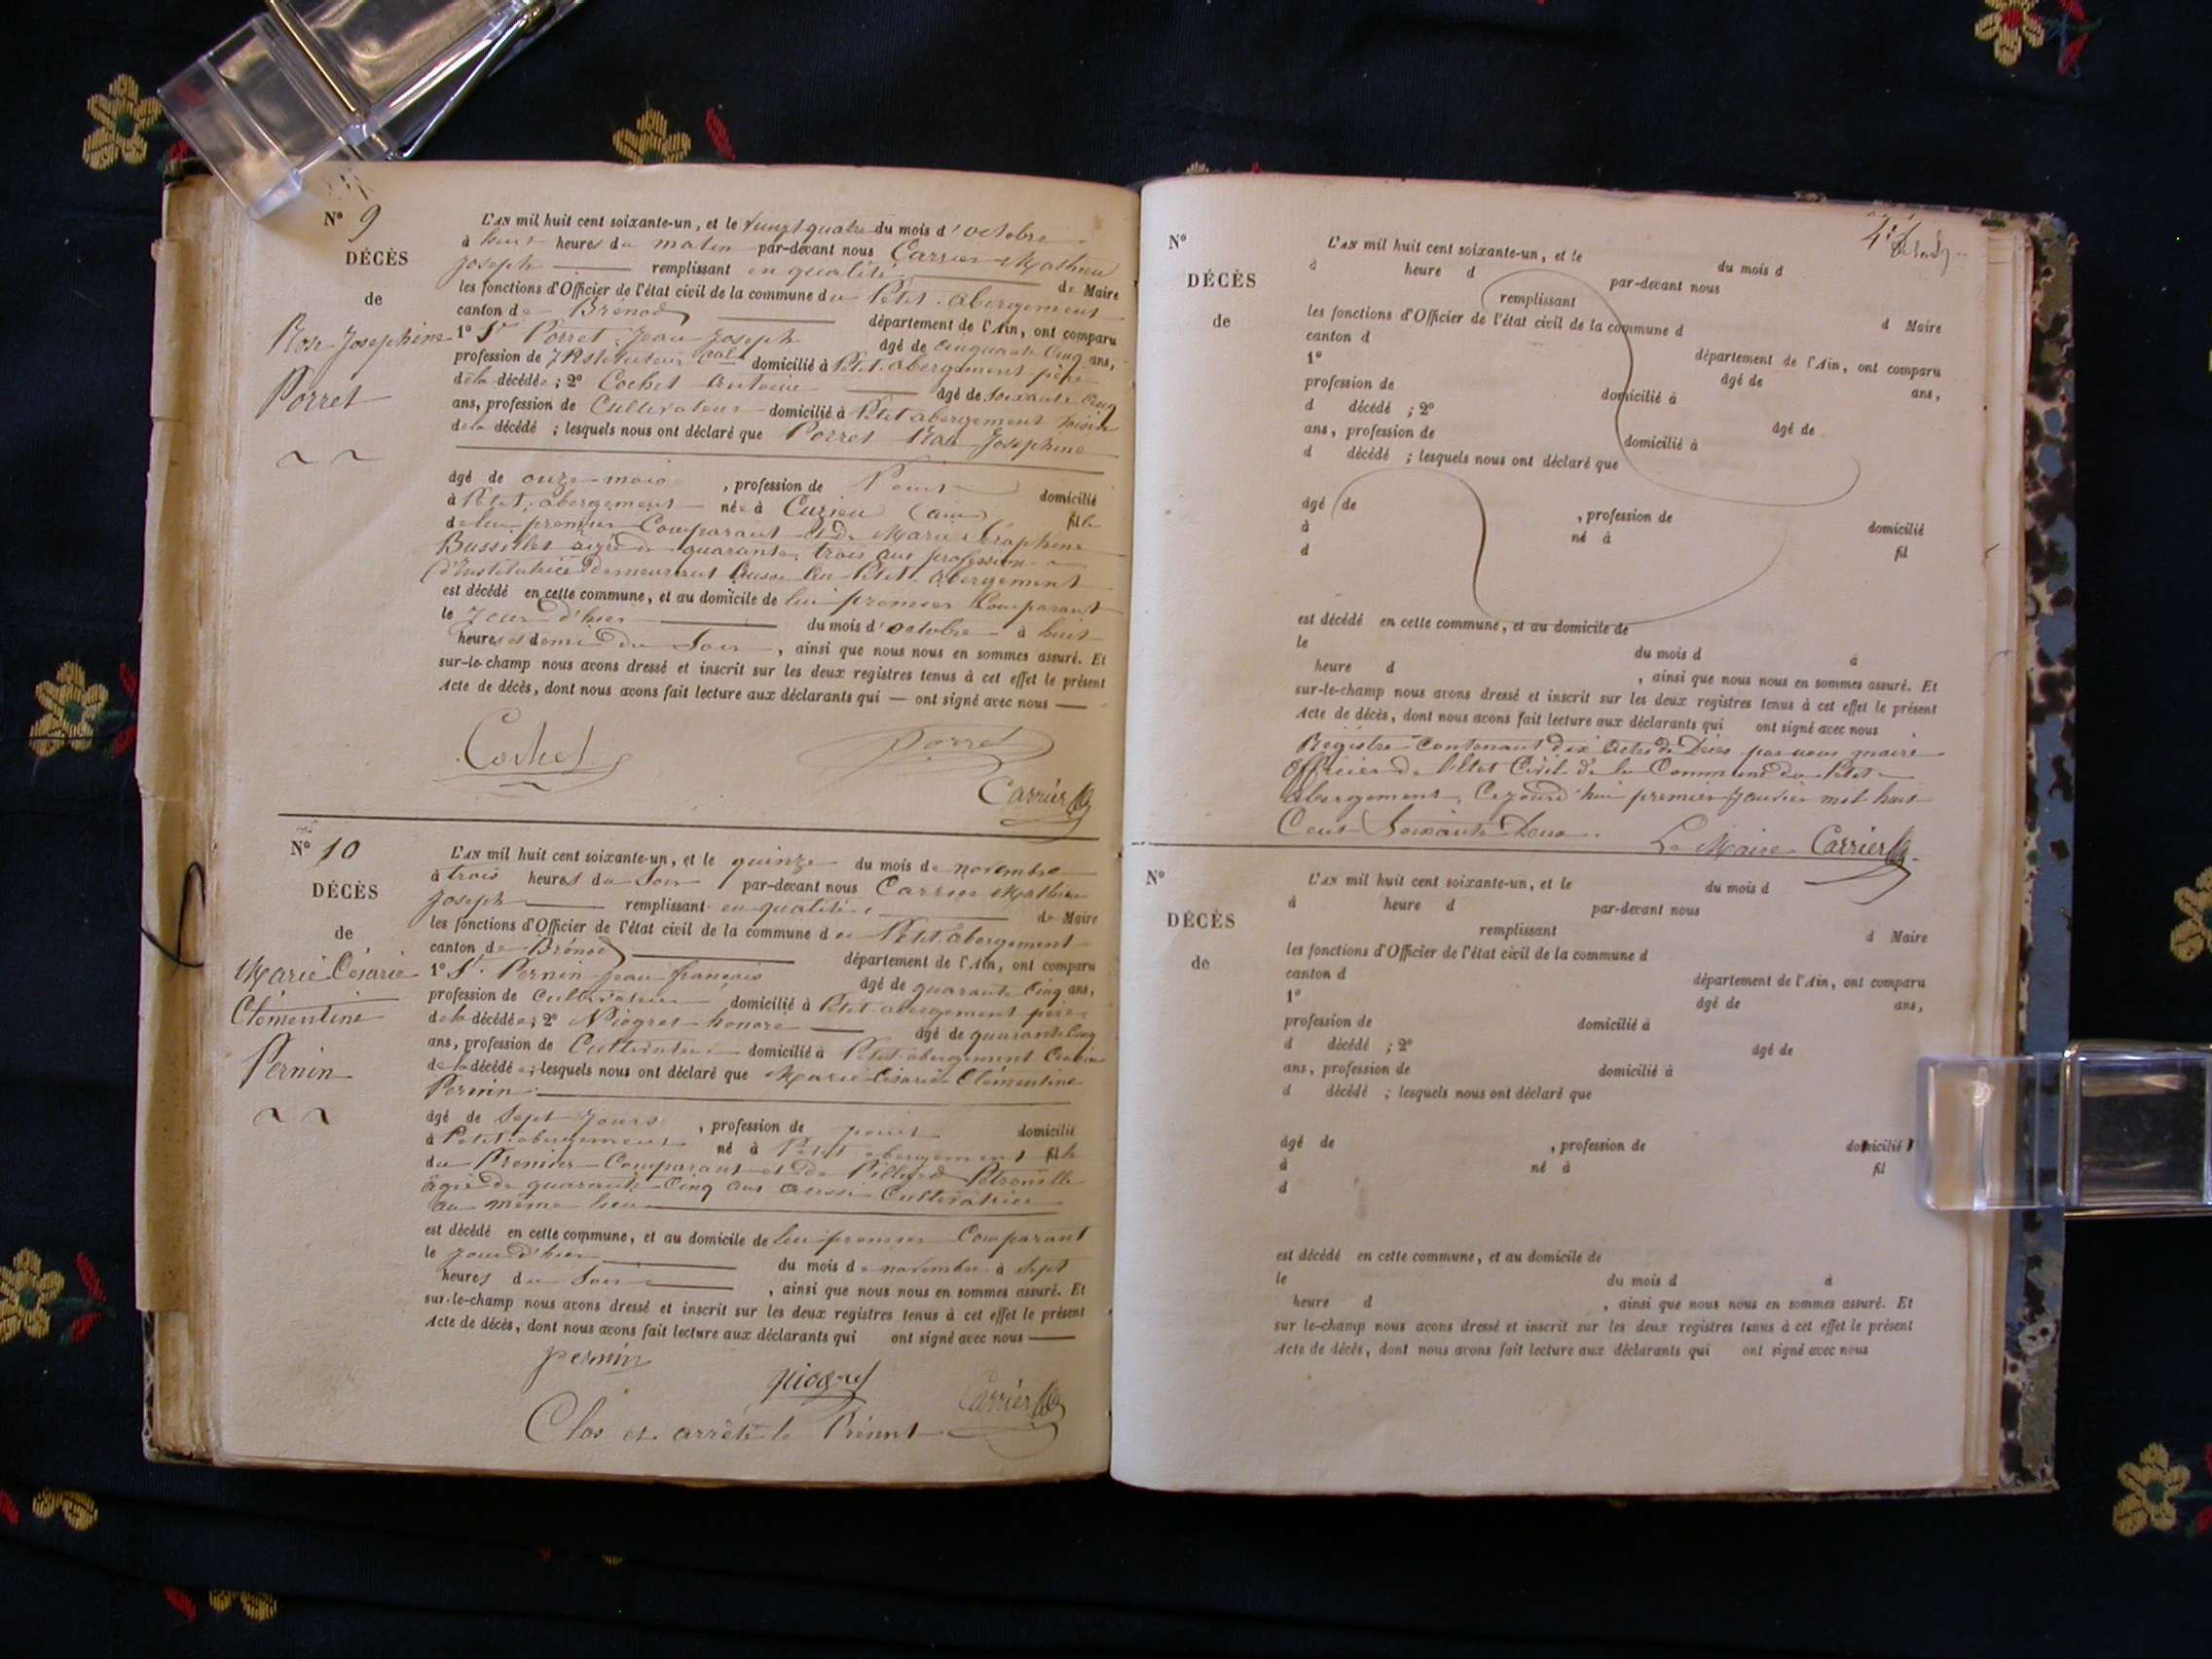 N° 9
DÉCÈS
de
Rose Josephine
Porret
L'AN mil huit cent soixante-un, et le vingt quatre du mois d'octobre
à huit heures du matin par-devant nous Carrier Mathieu
Joseph remplissant en qualité de Maire
les fonctions d'Officier de l'état civil de la commune du Petit-abergement
canton de Brénod département de l'Ain, ont comparu
1° Sr Porret Jean Joseph âgé de cinquante cinq ans,
profession de Instituteur domicilié à Petit abergement père
de la décédée; 2° Cochet Antoine âgé de soixante cinq
ans, profession de Cultivateur domicilié à Petit abergement voisin
de la décédé ; lesquels nous ont déclaré que Porret Rose Josephine
âgé de onze mois , profession de domicilié
à Petit-abergement née à Curieu (ain) fille
de lui premier Comparant et de Marie Séraphine
Bussillet agée de quarante trois ans profession
d'Institutrice demeurant aussi au Petit-abergement
est décédé en cette commune, et au domicile de lui premier Comparant
le Jour d'hier du mois d'octobre à huit
heures et demi du Soir , ainsi que nous nous en sommes assuré. Et
sur-le-champ nous avons dressé et inscrit sur les deux registres tenus à cet effet le présent
Acte de décès, dont nous avons fait lecture aux déclarants qui — ont signé avec nous —
Cochet Porret
Carrier
N° 10
DÉCÈS
de
Marie Césarie
Clémentine
Pernin
L'AN mil huit cent soixante-un, et le quinze du mois de novembre
à trois heures du Soir par-devant nous Carrier Mathieu
Joseph remplissant en qualité de Maire
les fonctions d'Officier de l'état civil de la commune du Petit-abergement
canton de Brénod département de l'Ain, ont comparu
1° Sr. Pernin Jean françois âgé de quarante cinq ans,
profession de cultivateur domicilié à Petit-abergement père
de la décédée; 2° Niogret honoré âgé de quarante cinq
ans, profession de Cultivateur domicilié à Petit-abergement Cousin
de la décédée; lesquels nous ont déclaré que Marie Césarie Clémentine
Pernin
âgé de Sept Jours , profession de domicilié
à Petit-abergement né à Petit abergement fille
du Premier Comparant et de Pilland Petronille
agée de quarante Cinq ans aussi Cultivatrice
au même lieu
est décédé en cette commune, et au domicile de lui premier Comparant
le Jour d'hier du mois de novembre à Sept
heures du Soir , ainsi que nous nous en sommes assuré. Et
sur-le-champ nous avons dressé et inscrit sur les deux registres tenus à cet effet le présent
Acte de décès, dont nous avons fait lecture aux déclarants qui ont signé avec nous —
pernin
niogret Carrier
Clos et arrêté le Présent
N°
DÉCÈS
de
L'AN mil huit cent soixante-un, et le du mois d
à heure d par-devant nous
remplissant d Maire
les fonctions d'Officier de l'état civil de la commune d
canton d département de l'Ain, ont comparu
1° âgé de ans,
profession de domicilié à
d décédé ; 2° âgé de
ans, profession de domicilié à
d décédé ; lesquels nous ont déclaré que
âgé de , profession de domicilié
à né à fil
d
est décédé en cette commune, et au domicile de
le du mois d à
heure d , ainsi que nous nous en sommes assuré. Et
sur-le-champ nous avons dressé et inscrit sur les deux registres tenus à cet effet le présent
Acte de décès, dont nous avons fait lecture aux déclarants qui ont signé avec nous
Régistre Contenant dix Actes de Décès par nous maire
Officier de l'Etat Civil de la Commune du Petit
abergement, Cejourd'hui premier Janvier mil huit
Cent Soixante Deux.
Le Maire Carrier
N°
DÉCÈS
de
L'AN mil huit cent soixante-un, et le du mois d
à heure d par-devant nous
remplissant d Maire
les fonctions d'Officier de l'état civil de la commune d
canton d département de l'Ain, ont comparu
1° âgé de ans,
profession de domicilié à
d décédé ; 2° âgé de
ans, profession de domicilié à
d décédé ; lesquels nous ont déclaré que
âgé de , profession de domicilié
à né à fil
d
est décédé en cette commune, et au domicile de
le du mois d à
heure d , ainsi que nous nous en sommes assuré. Et
sur le-champ nous avons dressé et inscrit sur les deux registres tenus à cet effet le présent
Acte de décès, dont nous avons fait lecture aux déclarants qui ont signé avec nous